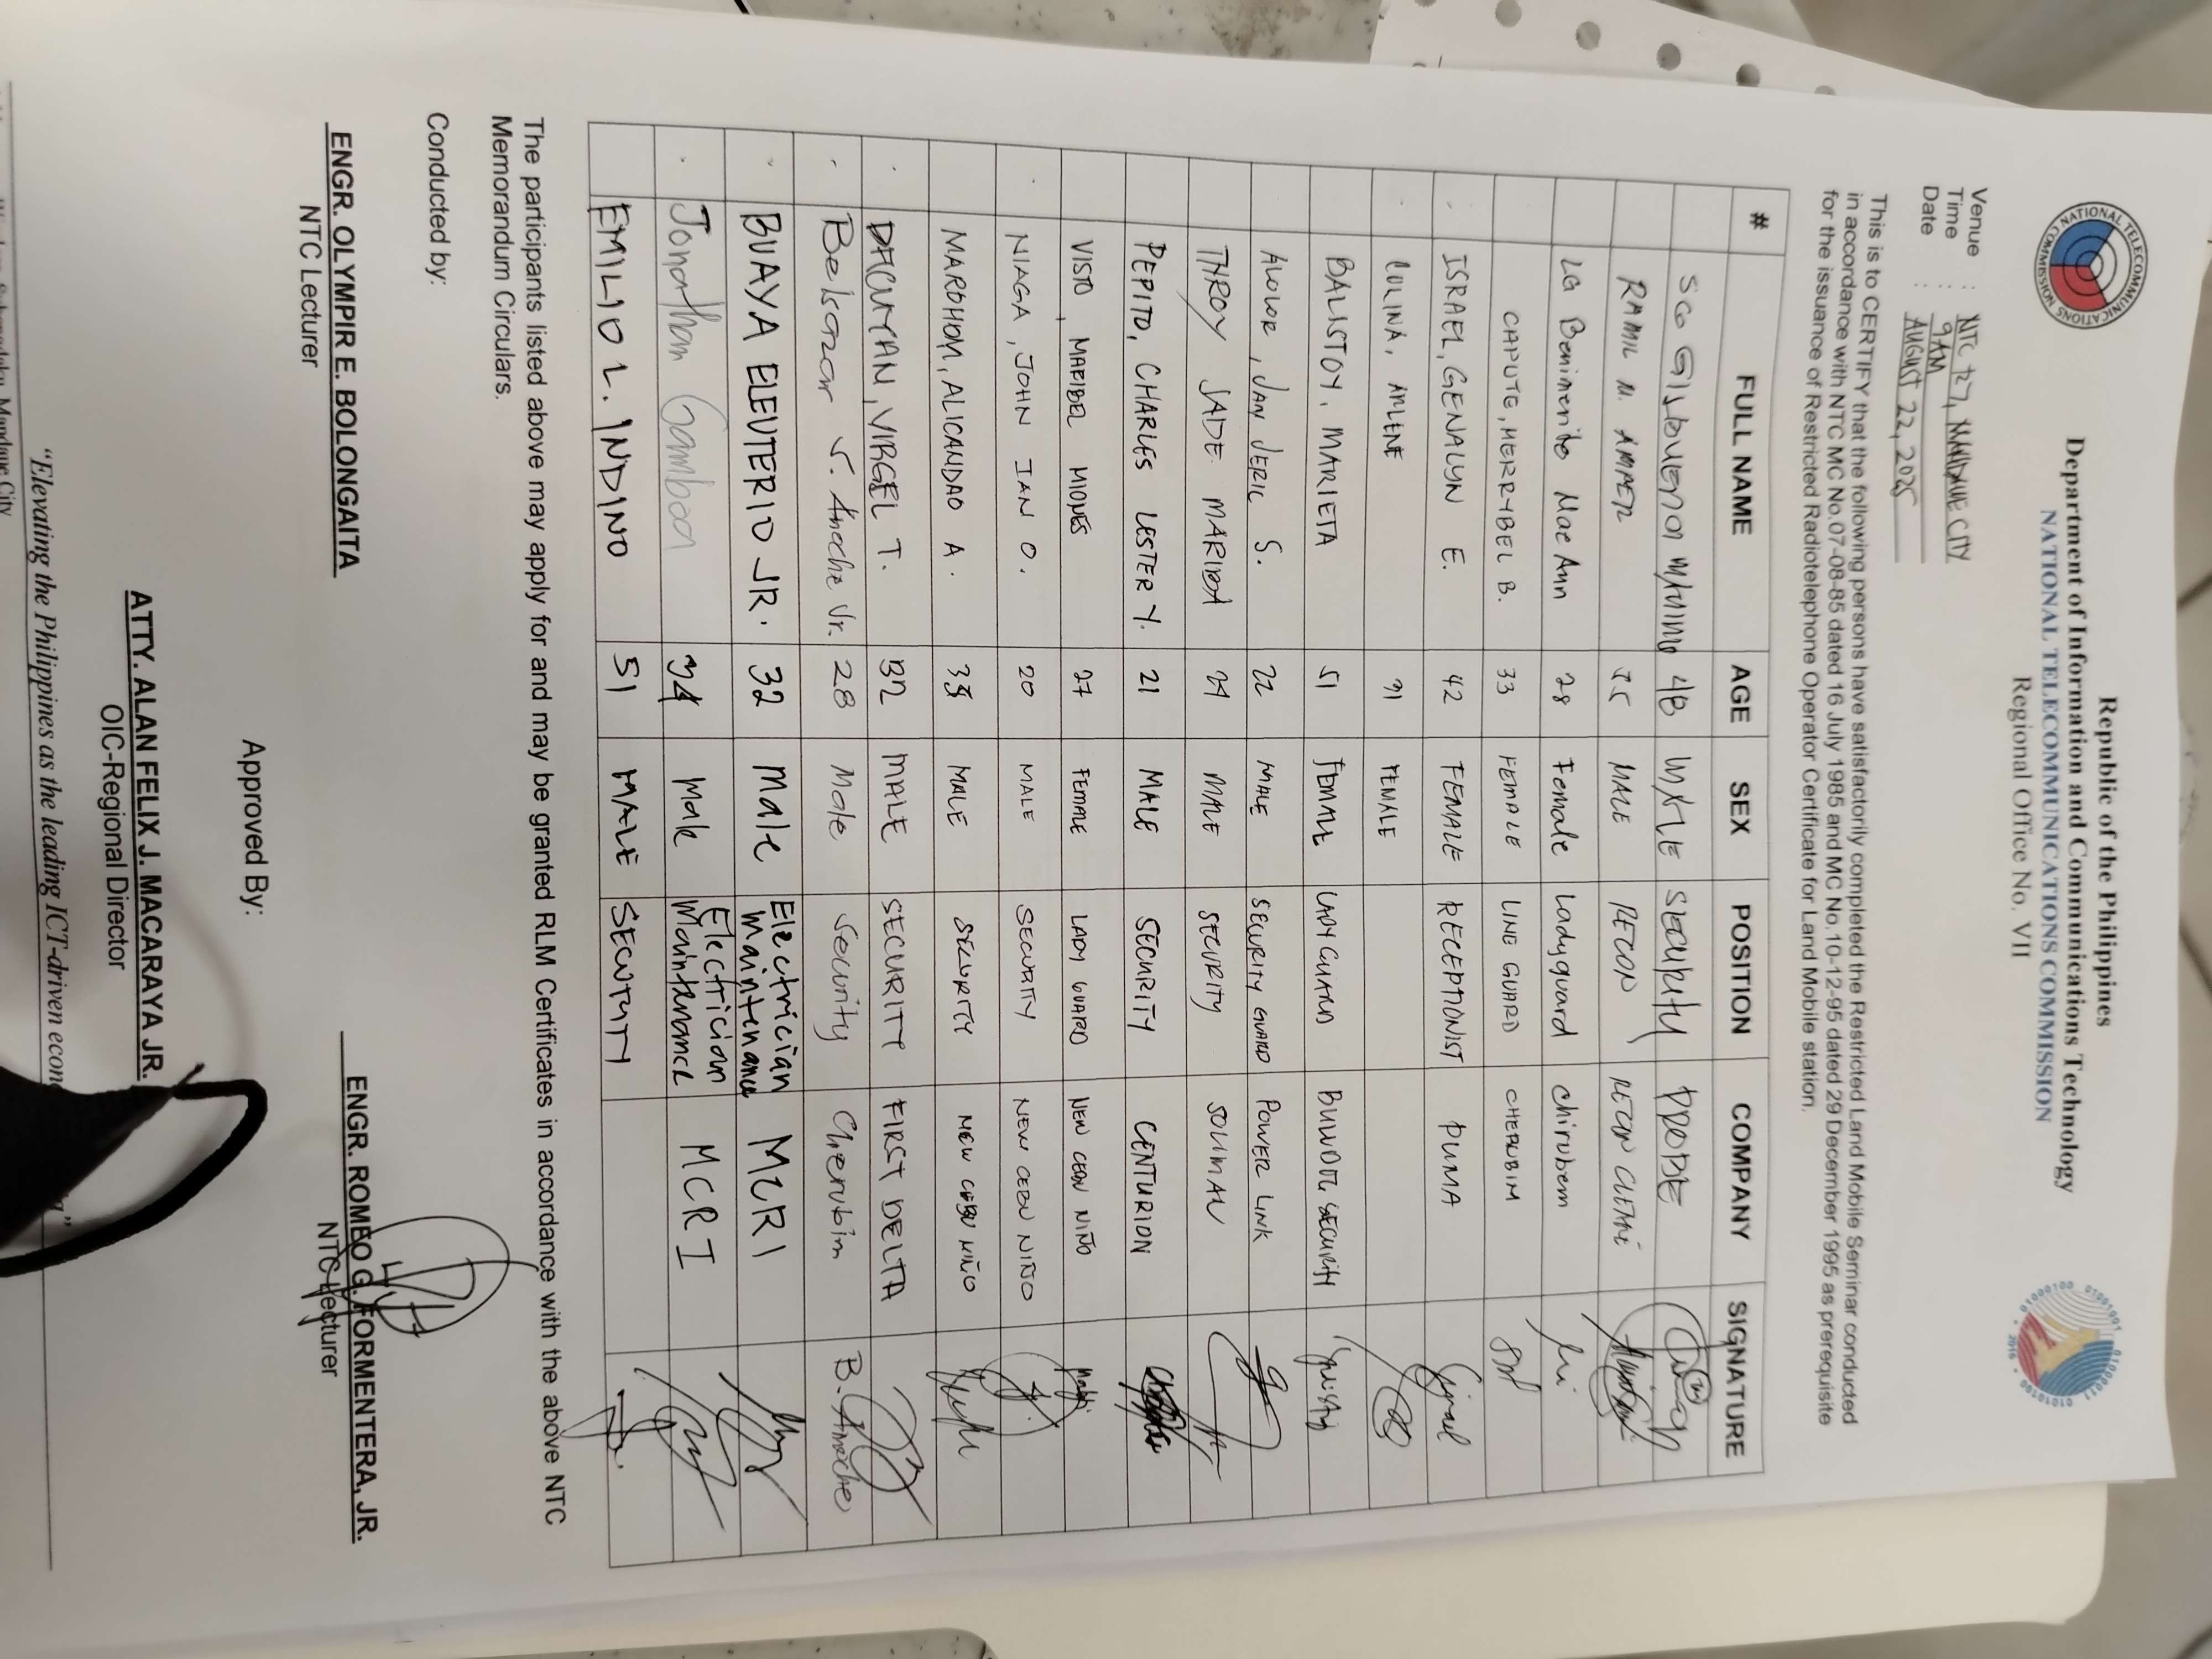 Republic of the Philippines
Department of Information and Communications Technology
NATIONAL TELECOMMUNICATIONS COMMISSION
Regional Office No. VII
NATIONAL TELECOMMUNICATIONS COMMISSION
Venue : NTC R7, MANDAUE CITY
Time : 9AM
Date : AUGUST 22, 2025
This is to CERTIFY that the following persons have satisfactorily completed the Restricted Land Mobile Seminar conducted
in accordance with NTC MC No.07-08-85 dated 16 July 1985 and MC No.10-12-95 dated 29 December 1995 as prerequisite
for the issuance of Restricted Radiotelephone Operator Certificate for Land Mobile station.
# FULL NAME AGE SEX POSITION COMPANY SIGNATURE
SGO MALE SECURITY PROBE
RAMIL N. AMPER MALE RECON
LG Benimerito Mae Ann 28 Female Ladyguard chirubem
CAPUTE, MERRYBEL B. 33 FEMALE LINE GUARD CHERUBIM
ISRAEL, GENALYN E. 42 FEMALE RECEPTIONIST PUMA
COLINA, ARLENE 31 FEMALE
BALISTOY, MARIETA 51 FEMALE LADY GUARD SECURITY
JAN JERIC S. 22 MALE SECURITY GUARD POWER LINK
JADE MALE SECURITY
PEPITO, CHARLES LESTER Y. 21 MALE SECURITY CENTURION
VISTO, MARIBEL MIONES 27 FEMALE LADY GUARD NEW CEBU NIÑO
NIAGA, JOHN IAN O. 20 MALE SECURITY NEW CEBU NINO
MARDHOM, ALICANDAO A. MALE SECURITY NEW CEBU NIÑO
DACUYAN, VIRGEL T. 32 MALE SECURITY FIRST DELTA
Belsazar S. Anoche Jr. 28 Male Security Cherubim B. Anoche
BUAYA ELEUTERIO JR. 32 Male Electrician maintenance MCRI
Jonathan Gamboa 34 Male Electrician Maintenance MCRI
EMILIO L. INDINO 51 MALE SECURITY
The participants listed above may apply for and may be granted RLM Certificates in accordance with the above NTC
Memorandum Circulars.
Conducted by:
ENGR. OLYMPIR E. BOLONGAITA
NTC Lecturer
ENGR. ROMEO G. FORMENTERA, JR.
NTC Lecturer
Approved By:
ATTY. ALAN FELIX J. MACARAYA JR.
OIC-Regional Director
“Elevating the Philippines as the leading ICT-driven
Mandaue City